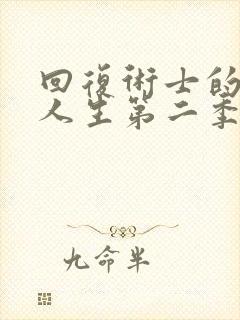 回復術士的
人生第二季
九命半